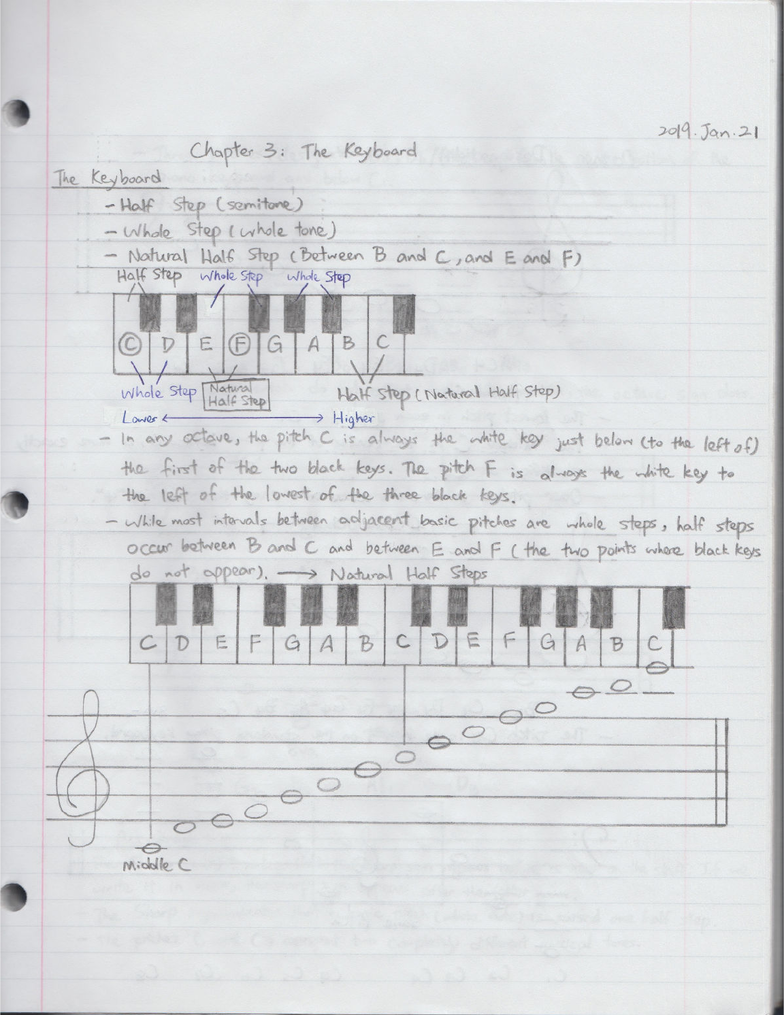 2019. Jan. 21
Chapter 3: The Keyboard
The Keyboard
- Half Step (semitone)
- Whole Step (whole tone)
- Natural Half Step (Between B and C, and E and F)
Half Step Whole Step Whole Step
C D E F G A B C
Whole Step Natural Half Step Half Step (Natural Half Step)
Lower ←→ Higher
- In any octave, the pitch C is always the white key just below (to the left of)
the first of the two black keys. The pitch F is always the white key to
the left of the lowest of the three black keys.
- While most intervals between adjacent basic pitches are whole steps, half steps
occur between B and C and between E and F (the two points where black keys
do not appear). → Natural Half Steps
C D E F G A B C D E F G A B C
Middle C